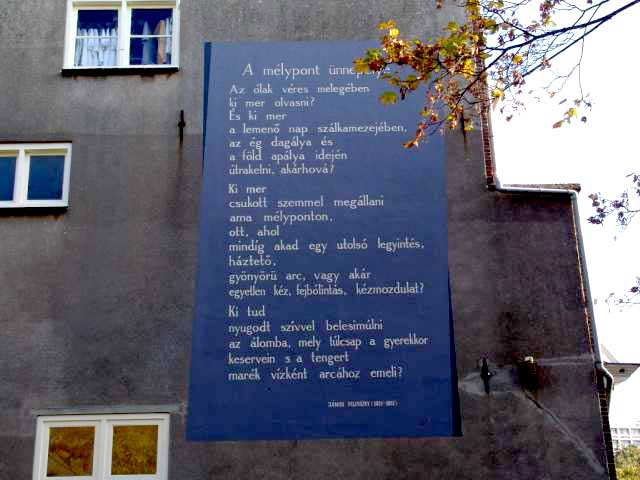 A mélypont ünnepélye
Az ólak véres melegében
ki mer olvasni?
És ki mer
a lemenő nap szálkamezejében,
az ég dagálya és
a föld apálya idején
útrakelni, akárhová?
Ki mer
csukott szemmel megállani
ama mélyponton,
ott, ahol
mindíg akad egy utolsó legyintés,
háztető,
gyönyörü arc, vagy akár
egyetlen kéz, fejbólintás, kézmozdulat?
Ki tud
nyugodt szívvel belesimúlni
az álomba, mely túlcsap a gyerekkor
keservein s a tengert
marék vízként arcához emeli?
JÁNOS PILINSZKY (1921-1981)